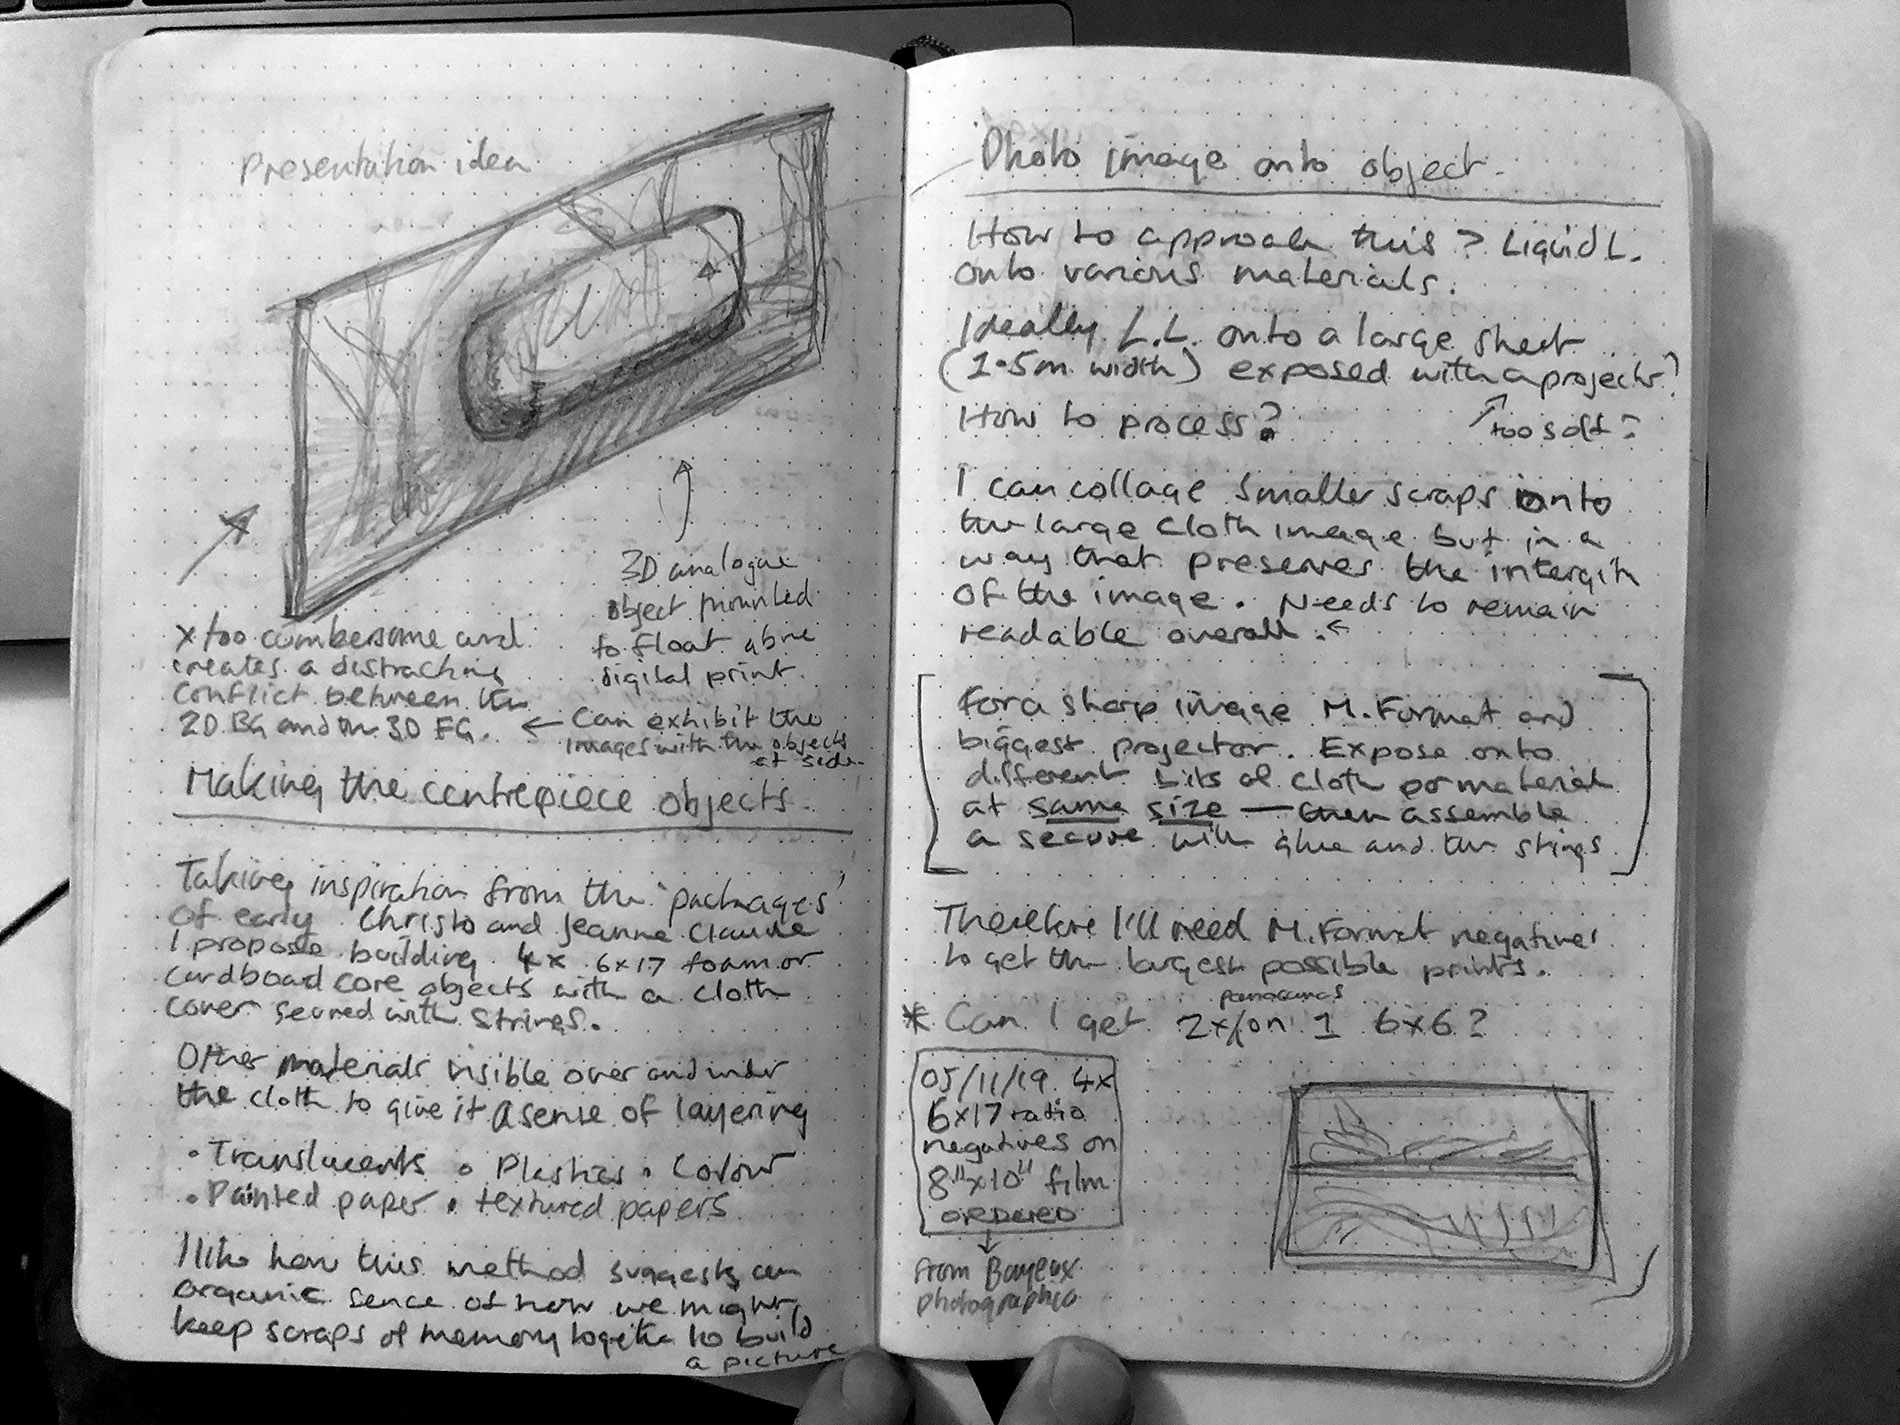 Presentation idea
3D analogue
object mounted
to float above
digital print.
x too cumbersome and
creates a distracting
conflict between the
2D BG and the 3D FG.
← Can exhibit the
images with the objects
at side.
Making the centrepiece objects.
Taking inspiration from the 'packages'
of early Christo and Jeanne Claude
I propose building 4x 6x17 foam or
cardboard core objects with a cloth
cover secured with strings.
Other materials visible over and under
the cloth to give it a sense of layering
• Translucents • Plastics • Colour
• Painted paper • textured papers
I like how this method suggests an
organic sence of how we might
keep scraps of memory together to build
a picture
Photo image onto object.
How to approach this? Liquid L.
onto various materials.
Ideally L.L. onto a large sheet
(1.5m width) exposed with a projector?
too soft?
How to process?
I can collage smaller scraps onto
the large cloth image but in a
way that preserves the
of the image. Needs to remain
readable overall. ←
For a sharp image M.Format and
biggest projector. Expose onto
different bits of cloth or material
at same size — then assemble
a secure with glue and the strings
Therefore I'll need M.Format negatives
to get the largest possible prints.
panoramas
* Can I get 2x on 1 6x6?
05/11/19 4x
6x17 ratio
negatives on
8"x10" film
ORDERED
from Bayeux
photographic